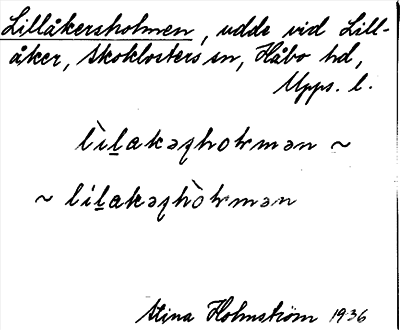 Lillåkersholmen, udde vid Lill-
åker, Skoklosters sn, Håbo hd,
Upps. l.
lìḻakəʂhoɫmən ~
~ líḻakəʂhòɫmən
Stina Holmström 1936